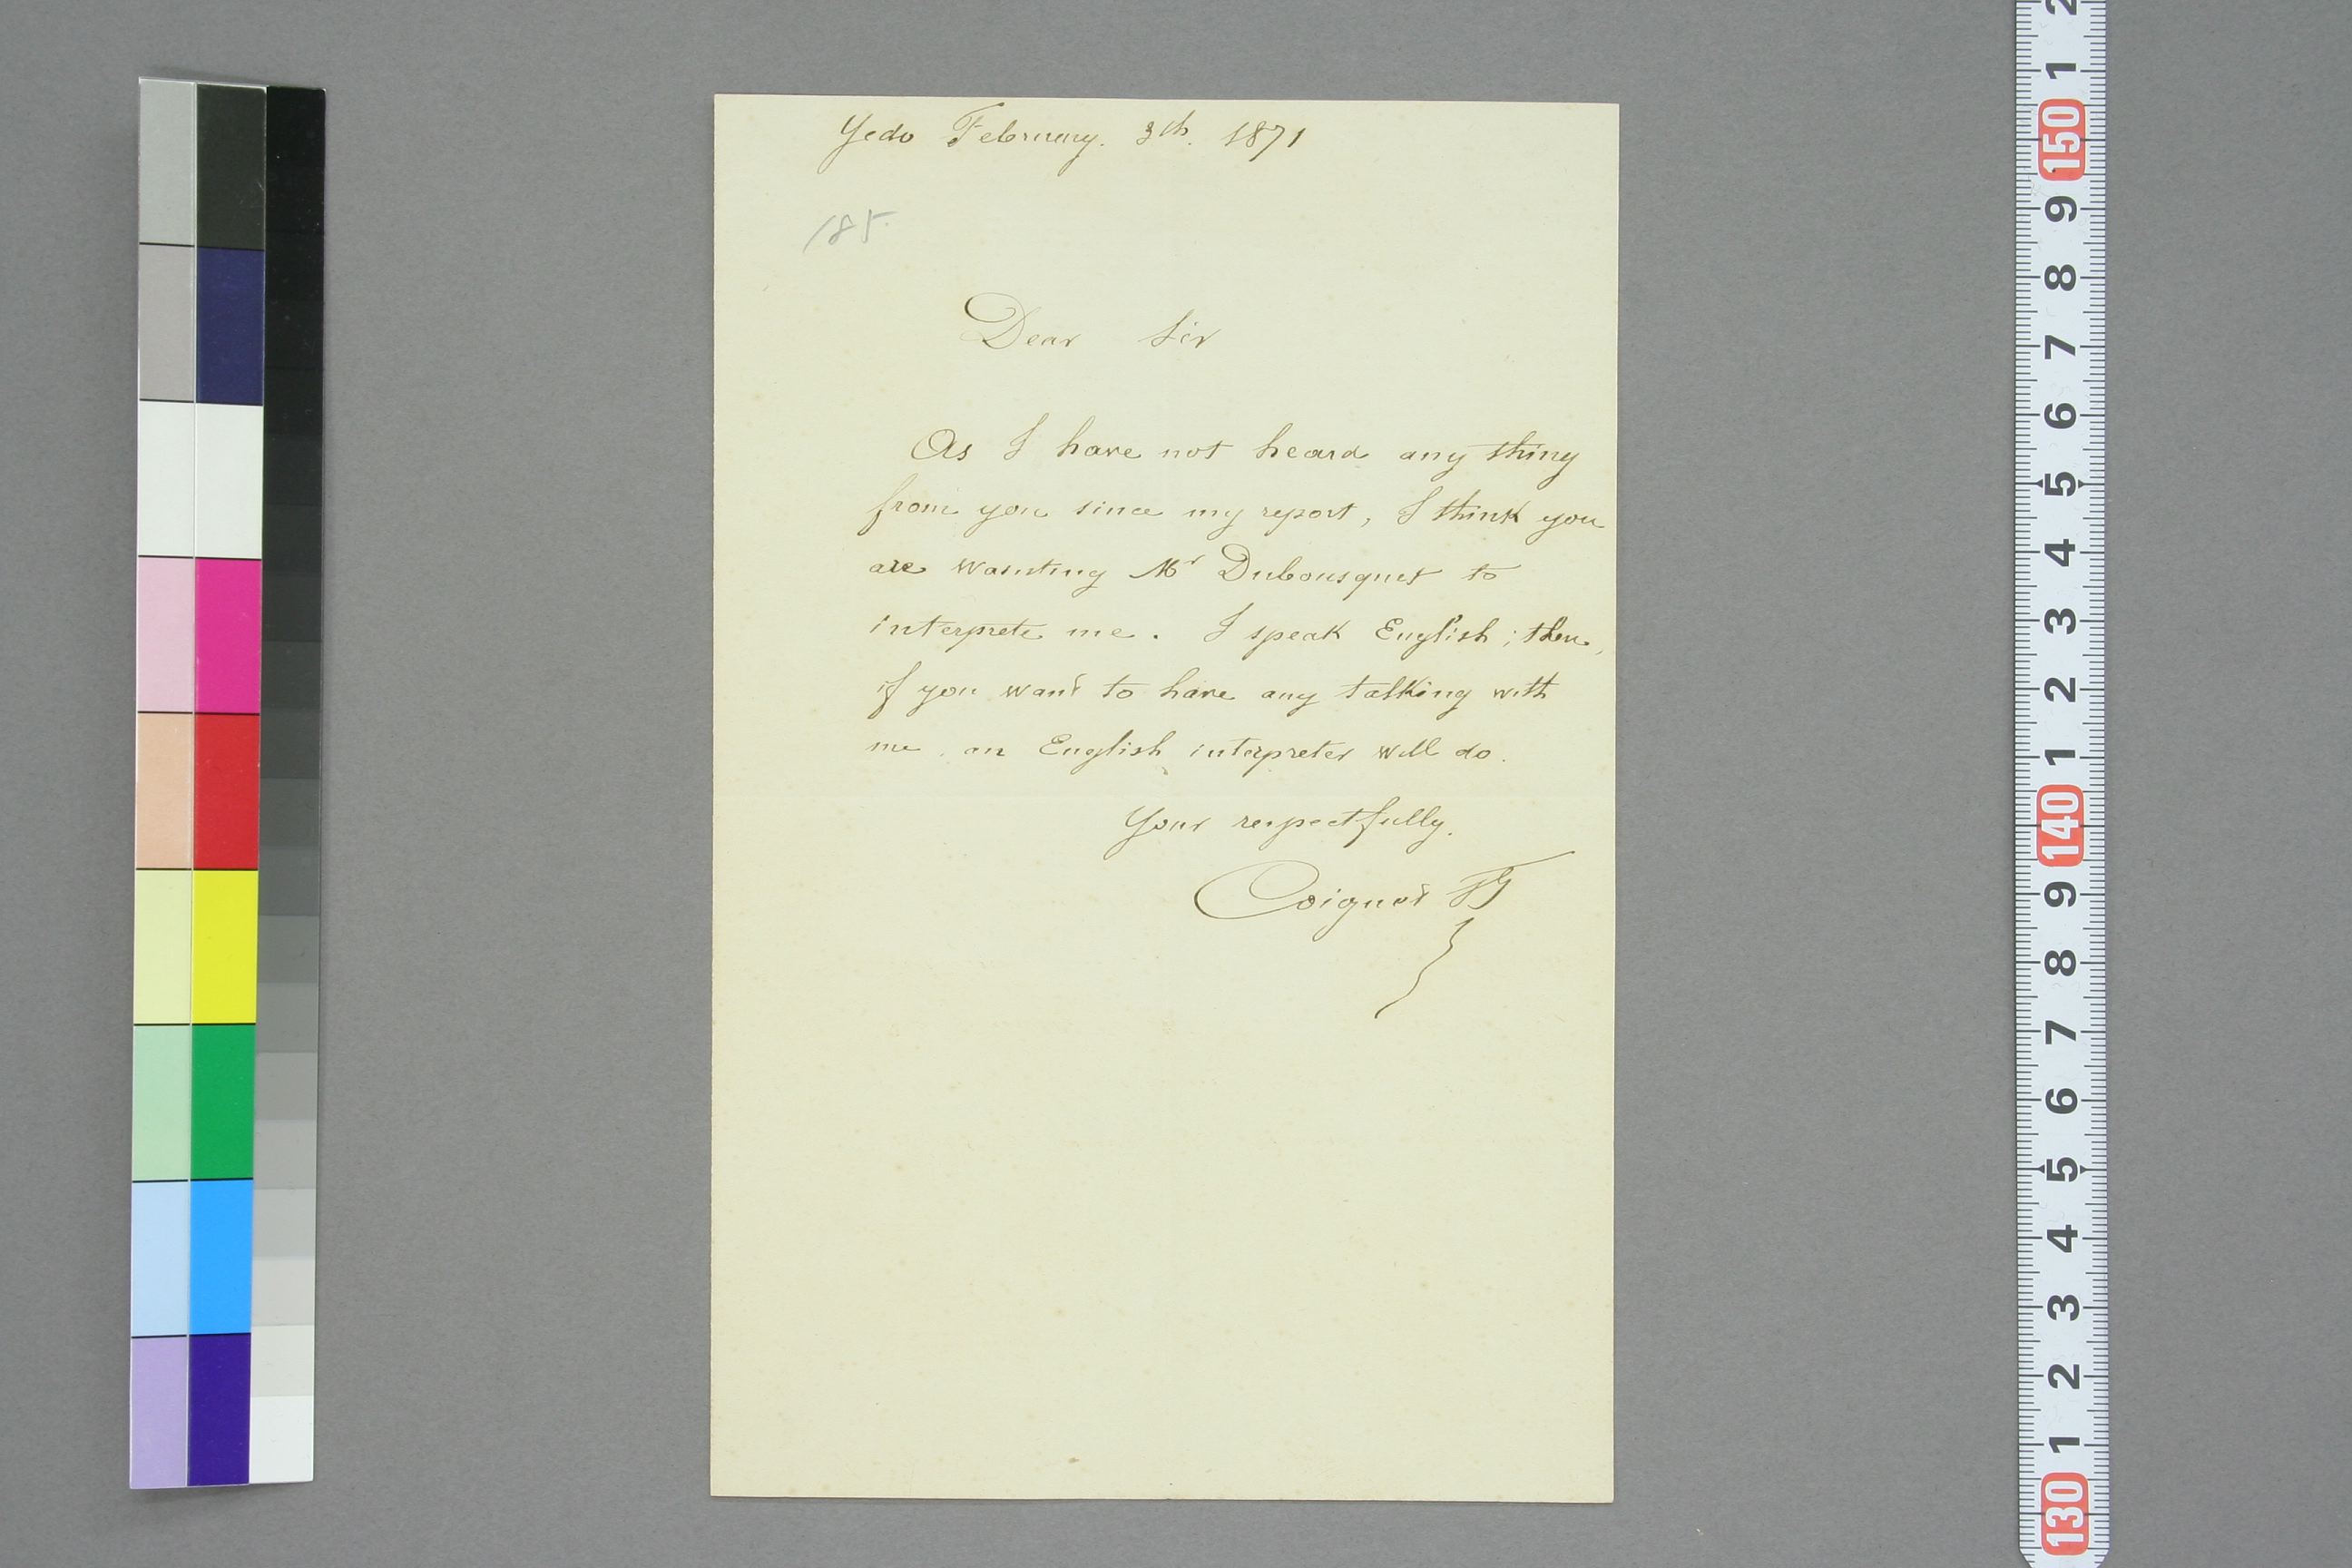 Yedo February. 3th. 1871
185.
Dear Sir
As I have not heard any thing
from you since my report, I think you
are wainting Mr Dubousquet to
interprete me. I speak English; then,
if you want to have any talking with
me, an English interpreter will do.
Your respectfully.
Coignet
2
1
150
9
8
7
6
5
4
3
2
1
140
9
8
7
6
5
4
3
2
1
130